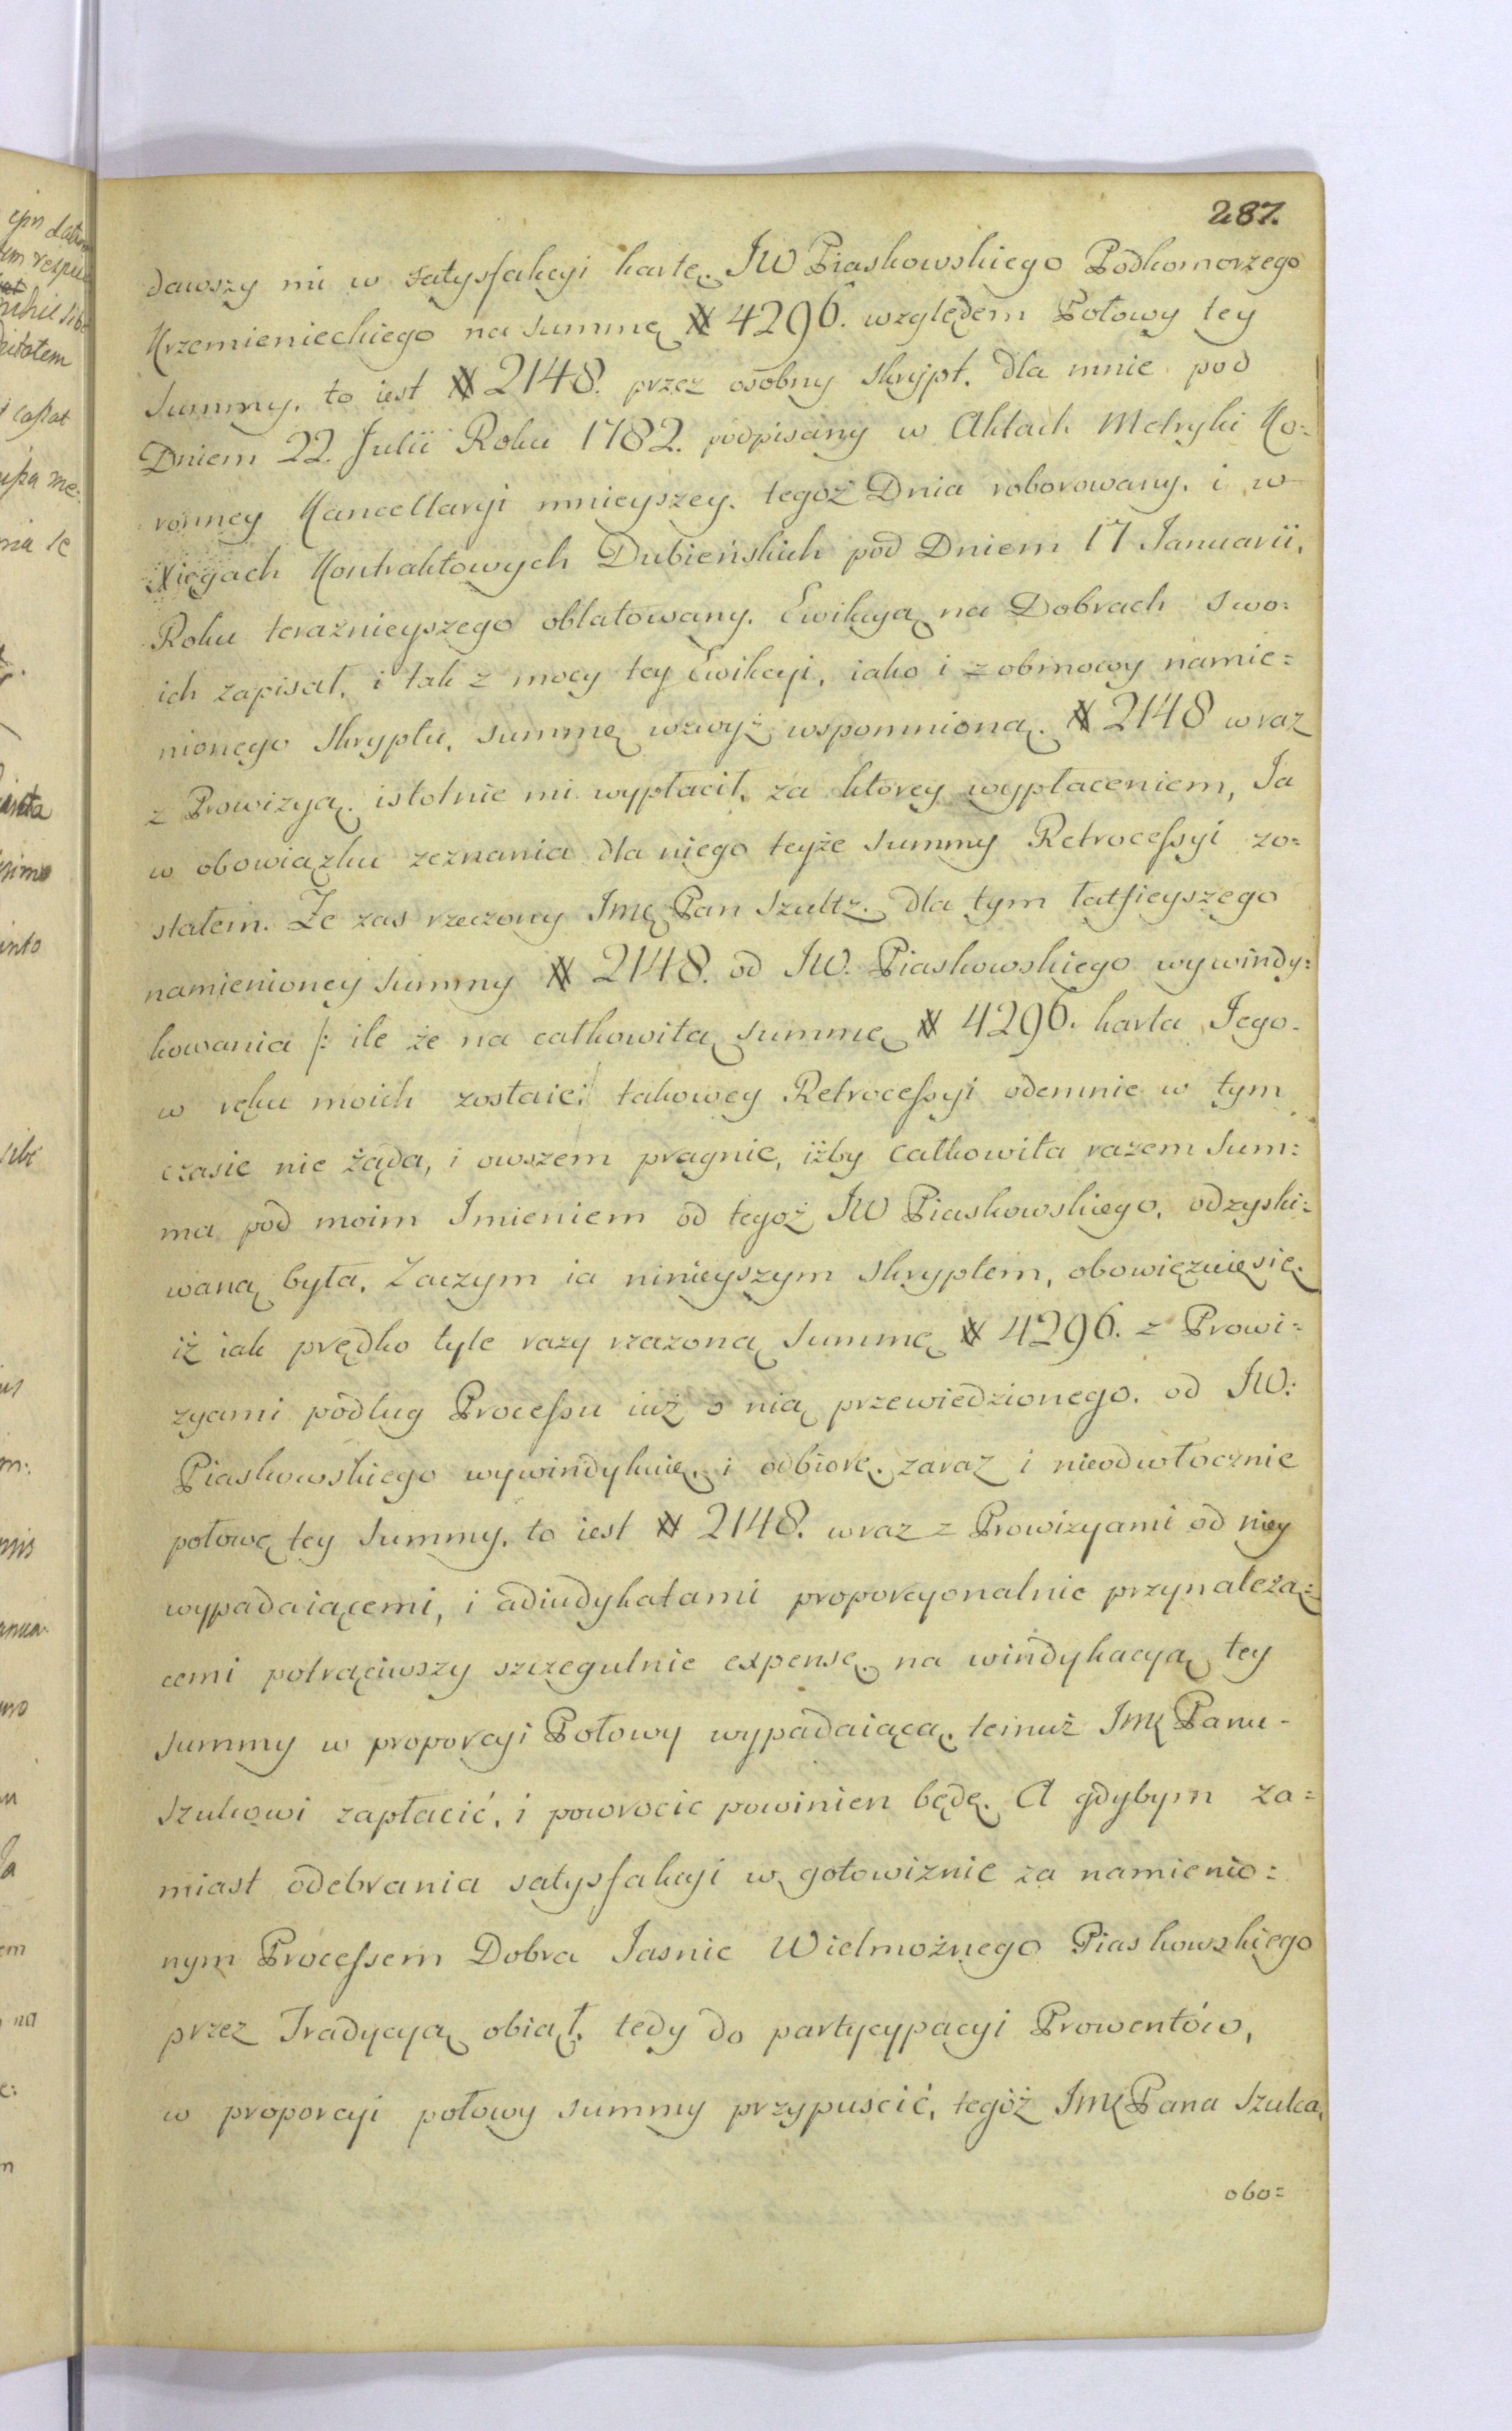 287.
dawszy mi w satysfakcyi kartę JW Piaskowskiego Podkomorzego
Krzemienieckiego na summę # 4296. względem Połowy tey
Summy, to iest # 2148. przez osobny skrypt, dla mnie pod
Dniem 22. Julii Roku 1782. podpisany w Aktach Metryki Ko=
ronney Kancellaryi mnieyszey, tegoż Dnia roborowany, i w
Xięgach Kontraktowych Dubieńskich pod Dniem 17 Januarii,
Roku teraznieyszego oblatowany, Ewikcyą na Dobrach swo=
ich zapisał, i tak z mocy tey Ewikcyi, iako i z obmowy namie=
nionego skryptu, summę wzwyż wspomnioną # 2148 wraz
z Prowizyą istotnie mi wypłacił, za ktorey wypłaceniem, Ja
w obowiązku zeznania dla niego teyże Summy Retrocessyi zo=
stałem. Ze zas rzeczony Jmć Pan Szultz, dla tym łatsieyszego
namienioney summy # 2148. od JW. Piaskowskiego wywindy=
kowania /: ile że na całkowitą summę # 4296. karta Jego
w ręku moich zostaie :/ takowey Retrocessyi odemnie w tym
czasie nie żąda, i owszem pragnie, iżby całkowita razem Sum=
ma pod moim Imieniem od tegoż JW Piaskowskiego, odzyski=
waną była, Zaczym ia ninieyszym skryptem, obowięzuię się
iż iak prędko tyle razy rzeczoną summę # 4296. z Prowi=
zyami podług Processu iuż o nią przewiedzionego, od JW:
Piaskowskiego wywindykuię, i odbiorę, zaraz i nieodwłocznie
połowę tey Summy, to iest # 2148. wraz z Prowizyami od niey
wypadaiącemi, i adiudykatami proporcyonalnie przynależą=
cemi potrąciwszy szczegulnie expensę na windykacyą tey
summy w proporcyi Połowy wypadaiącą, temuż Jmć Panu
Szulcowi zapłacić, i powrocic powinien będę. A gdybym za=
miast odebrania satysfakcyi w gotowiznie za namienio=
nym Processem Dobra Jasnie Wielmożnego Piaskowskiego
przez Tradycyą obiął, tedy do partycypacyi Prowentów,
w proporcyi połowy summy przypuscić, tegoż Jmć Pana Szulca,
obo=